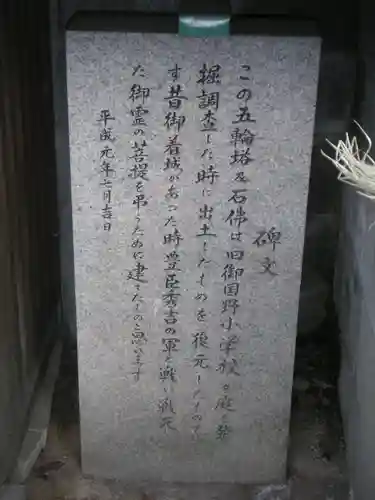 碑文
この五輪塔と石佛は旧御国野小学校の庭を発
掘調査した時に出土したものを復元したもので
す昔御着城があった時豊臣秀吉の軍と戦い戦死し
た御霊の菩提を弔うために建てたものと思います
平成元年七月吉日